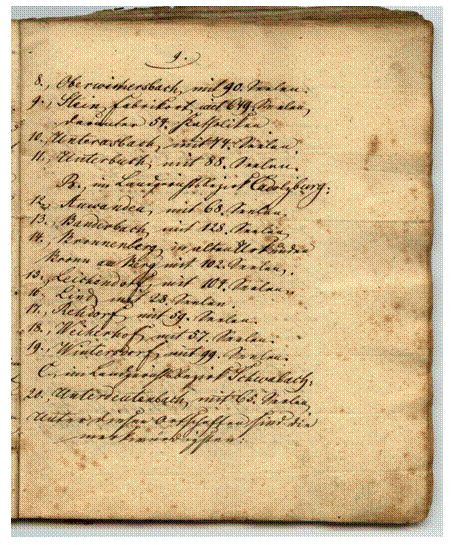 9.
8., Oberweihersbach, mit 90. Seelen.
9., Stein, Fabrikort, mit 649. Seelen,
darunter 54. Katholiken
10. Unterasbach, mit 44. Seelen.
11., Unterbach, mit 88. Seelen.
B., im Landgerichtsbezirk Cadolzburg:
12., Anwanden, mit 68. Seelen,
13., Banderbach, mit 128. Seelen,
14., Bronnenberg, in alten Urkunden
Bronn am Berg mit 102. Seelen,
15., Leichendorf, mit 109. Seelen,
16., Lind, mit 28. Seelen.
17., Rehdorf, mit 59. Seelen.
18., Weiherhof, mit 57. Seelen.
19., Wintersdorf, mit 99. Seelen.
C., im Landgerichtsbezirk Schwabach:
20. Unterdeutenbach, mit 62. Seelen,
Unter diesen Ortschaften sind die
merkwürdigsten: